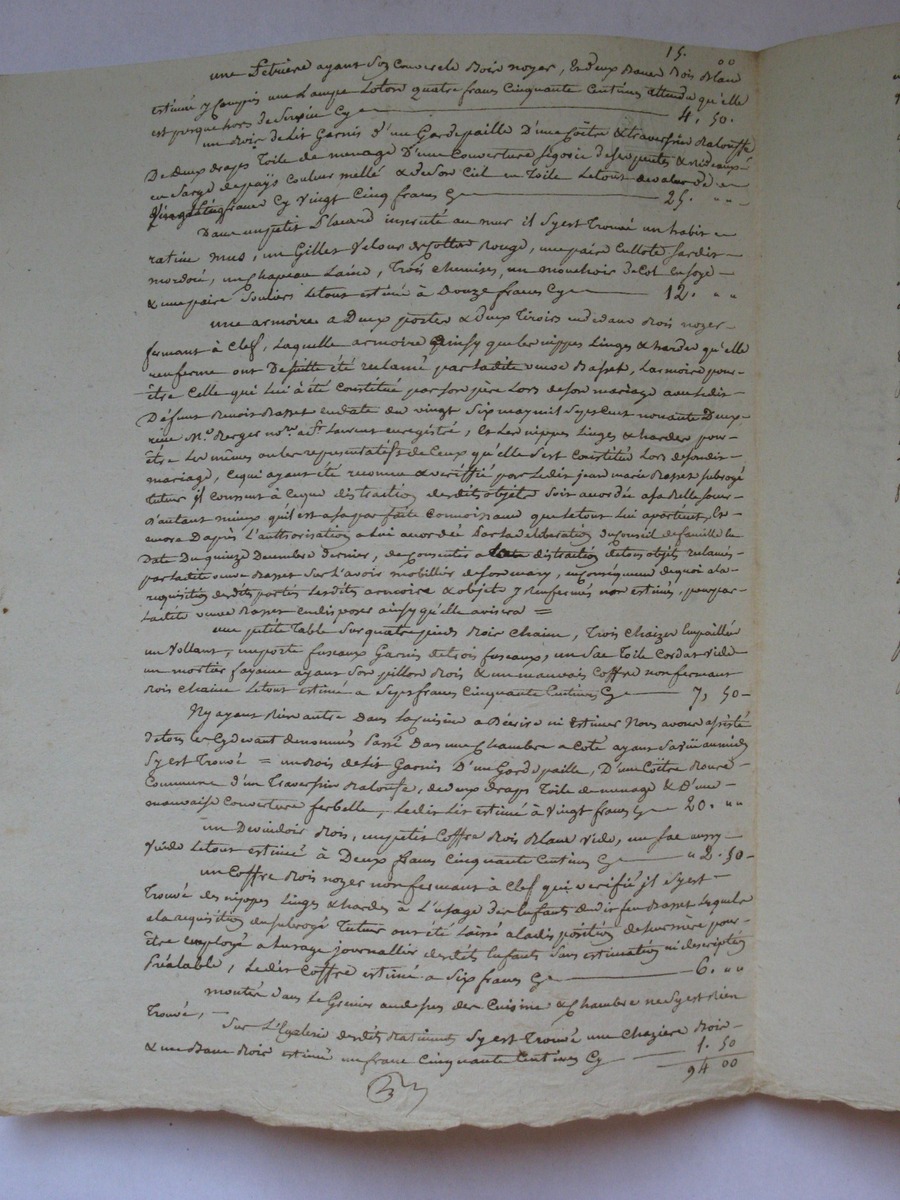 15. 00
une Petriere ayant son couvercle Bois noyer, & deux Bancs Bois Blanc
estimé y Compris une Lampe Loton quatre francs Cinquante Centimes attendu qu'elle
est presque hors de Service Cy 4, 50.
un Bois de Lit Garnis d'une Gardepaille D'une Coître & traversin Balouffe
De deux draps Toile de menage D'une Couverture & rideaux
en Sarge de pays Couleur mellé & de son Ciel en Toile Le tout de valeur de
Vingt Cinq francs Cy Vingt Cinq francs Cy 25. " "
Dans un petit Placard incrusté au mur il s'y est Trouvé un habit
ratine mus, un Gillet Velour de Cotton Rouge, une paire Cullote
mordoré, un Chapeau Laine, Trois Chemises, un mouchoir de Col en soye
& une paire Souliers Le tout estimé à Douze francs Cy 12. " "
une armoire a Deux portes & deux Tiroirs en dedans Bois noyer
fermant à Clef, Laquelle armoire ainsy que les nippes Linges & hardes qu'elle
renferme ont De suitte été reclamé par ladite veuve Basset, L'armoire pour
être Celle qui Lui a été Constitué par son père Lors de son mariage avec Ledit
Défunt Benoit Basset en date du vingt Six may mil Sept Cent nonante Deux
reçue Me. Berger nore. a St. Laurent enregistré, Et Les nippes Linges & hardes pour
être Les mêmes ou les representatifs de Ceux qu'elle s'est Constitué Lors de son dit
mariage, Ce qui ayant été reconnu & veriffié par Ledit jean marie Basset subrogé
tuteur il Consent à Ce que distraction desdits objets Soit accordée a sa Belle Soeur
d'autant mieux qu'il est a sa parfaite Connoissance que Le tout Lui apartient, Et
encore D'après L'authorisation a Lui accordée Par la deliberation du Conseil de famille en
Date Du quinze Decembre dernier, de Consentir a toute distraction de tous objets reclamés
par ladite veuve Basset Sur L'avoir mobillier de son mary, en Conséquence de quoi a la
requisition desdits parties Lesdits armoire & objets y Renfermés non estimés, pour par
Ladite veuve Basset en disposer ainsy qu'elle avisera =
une petite Table Sur quatre pieds Bois Chaine, Trois Chaizes Empaillée
un Vollant, un porte fuseaux Garnis de trois fuseaux, un Sac Toile Cordat Vide
un mortier fayance ayant Son pillon Bois & un mauvais Coffre non fermant
Bois Chaine Le tout estimé a Sept francs Cinquante Centimes Cy 7, 50
N'y ayant Rien autre Dans la Cuisine a Décrire ni Estimer Nous avons assisté
de tous les Cy devant denommés Passé Dans une Chambre a Coté ayant
S'y est Trouvé = un Bois de Lit Garnis D'un Gardepaille, D'une Coître
Commune d'un Traversin Balouse, de deux draps Toile de menage & D'une
mauvaise Couverture ferbelle, Ledit Lit estimé à Vingt francs Cy 20. " "
un Devindoir Bois, un petit Coffre Bois Blanc Vide, un sac aussy
Vuide Le tout estimé à Deux francs Cinquante Centimes Cy " 2. 50
un Coffre Bois noyer non fermant à Clef qui verifié il s'y est
Trouvé des nippes Linges & hardes à L'usage des Enfants dudit feu Basset Lesquels
a la requisition du subrogé Tuteur ont été Laissé a la disposition de pour
être employé a L'usage journallier desdits Enfants Sans estimation ni description
Préalable, Ledit Coffre estimé a Six francs Cy 6. " "
montés dans Le Grenier au dessus des Cuisine & Chambre ne s'y est Rien
Trouvé,
Sur L' desdits Batiments S'y est Trouvé une Bois
& un Banc Bois estimé un franc Cinquante Centimes Cy 1. 50
94 00